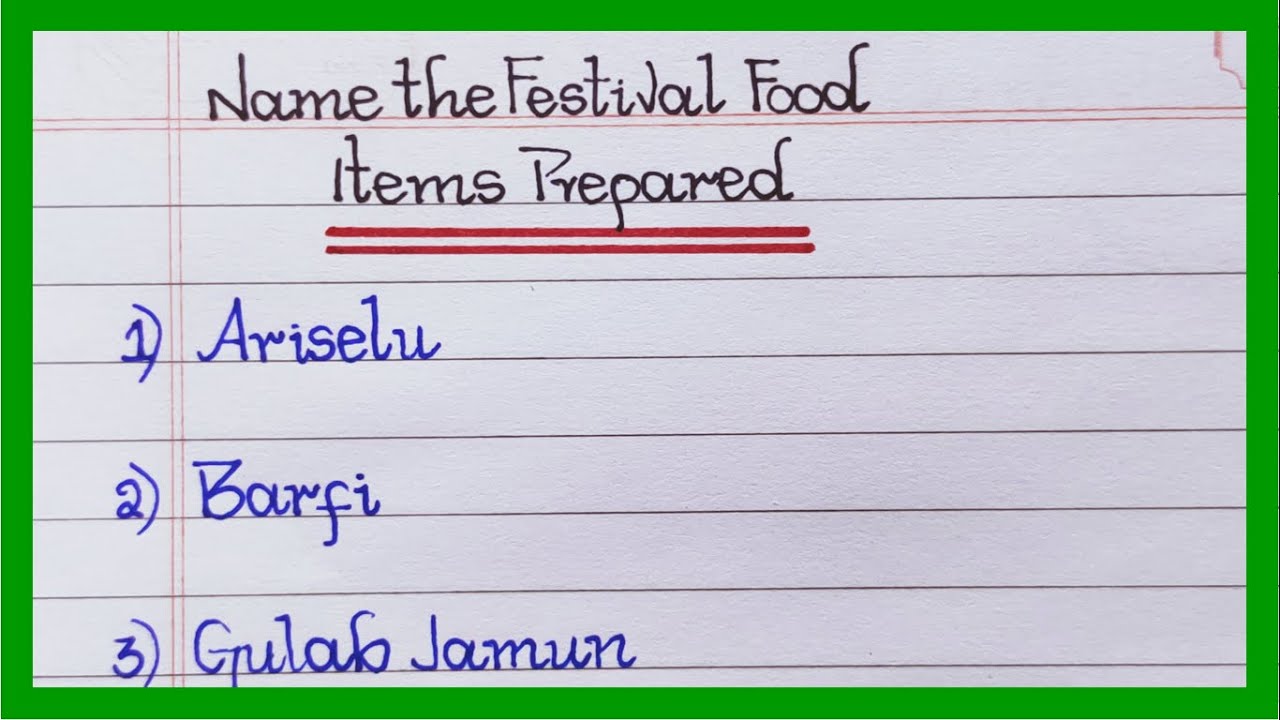 Name the Festival Food
Items Prepared
1) Ariselu
2) Barfi
3) Gulab Jamun